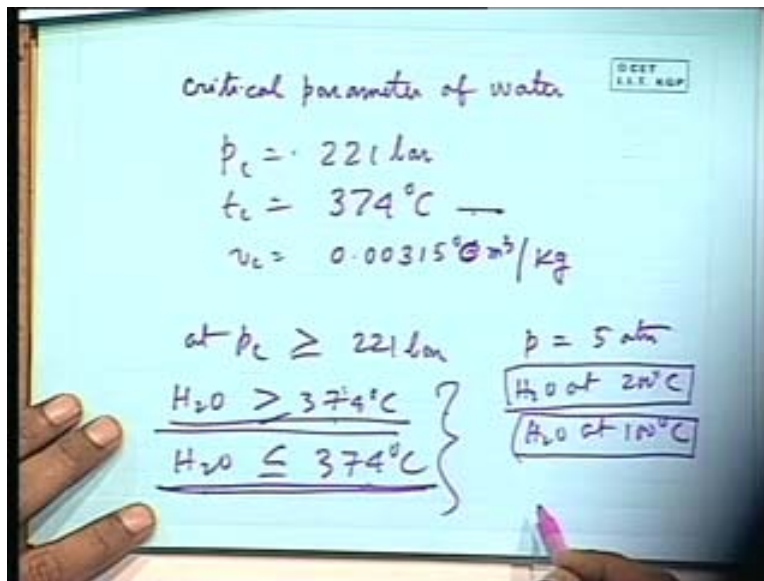 critical parameter of water
© CET
I.I.T. KGP
pc = 221 bar
tc = 374°C
vc = 0.00315 m³/kg
at pc ≥ 221 bar
H2O > 374°C
H2O ≤ 374°C
p = 5 atm
H2O at 200°C
H2O at 100°C